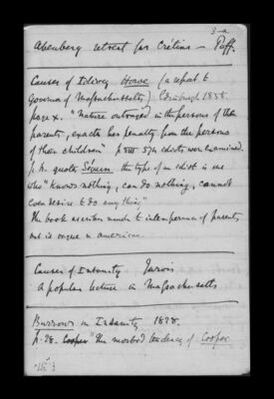 3-a
Abenberg retreat for Cretins — Puff.
Causes of Idiocy Howe (a report to
Governor of Massachusetts) Edinburgh 1858.
page x. "Nature outraged in the persons of the
parents, exacts her penalty from the persons
of their children" p. VIII 574 idiots were examined.
quotes Séguin the type of an idiot is one
who "knows nothing, can do nothing, cannot
even desire to do anything"
The book ascribes much to intemperance of parents
but is vague in
Causes of Insanity Jarvis
A popular lecture in Massachusetts
Burrows on Insanity 1828.
p. 28. Cooper "The morbid tendency of Cooper